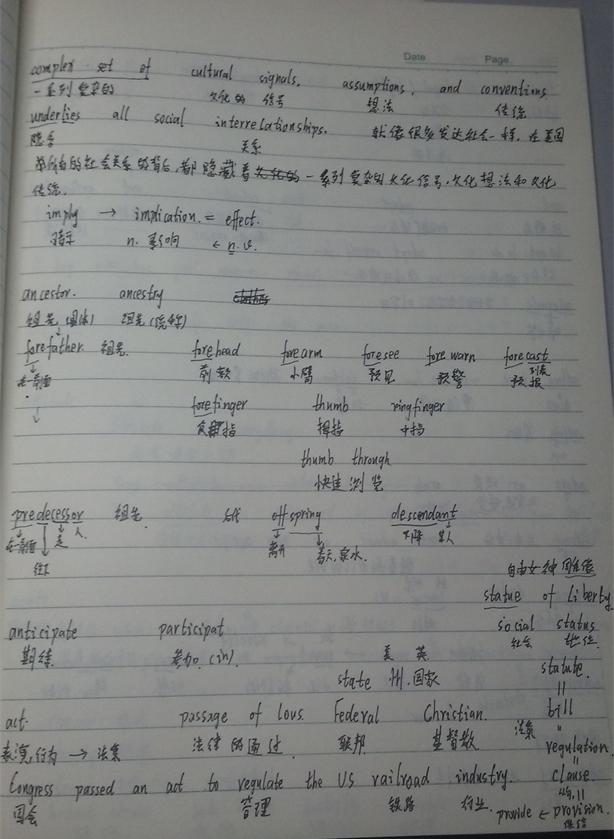 Date Page
complex set of cultural signals, assumptions, and conventions
一系列复杂的 文化的 信号 想法 传统
underlies all social interrelationships. 就像很多发达社会一样, 在美国
隐含 关系
所有的社会关系的背后, 都隐藏着 一系列复杂的文化信号, 文化想法和文化
传统.
imply → implication. = effect.
暗示 n. 影响 ← n. v.
ancestor. ancestry
祖先 (个体) 祖先 (统称)
forefather 祖先. forehead forearm foresee forewarn forecast
在前面 前额 小臂 预见 预警 预报
forefinger thumb ringfinger
食指 拇指 中指
thumb through
快速浏览
predecessor 祖先. 后代 offspring descendant
在前面 走 人. 离开 春天, 泉水. 下降 某人
往下
自由女神雕像
statue of Liberty
anticipate participat social status
期待. 参加. (in) 美 英 社会 地位
state 州. 国家 statute.
act. passage of lows. Federal Christian. bill
表演, 行为 → 法案 法律的通过. 联邦 基督教 法案
regulation.
Congress passed an act to regulate the US railroad industry. clause
国会 管理 铁路 行业. provide ← provision